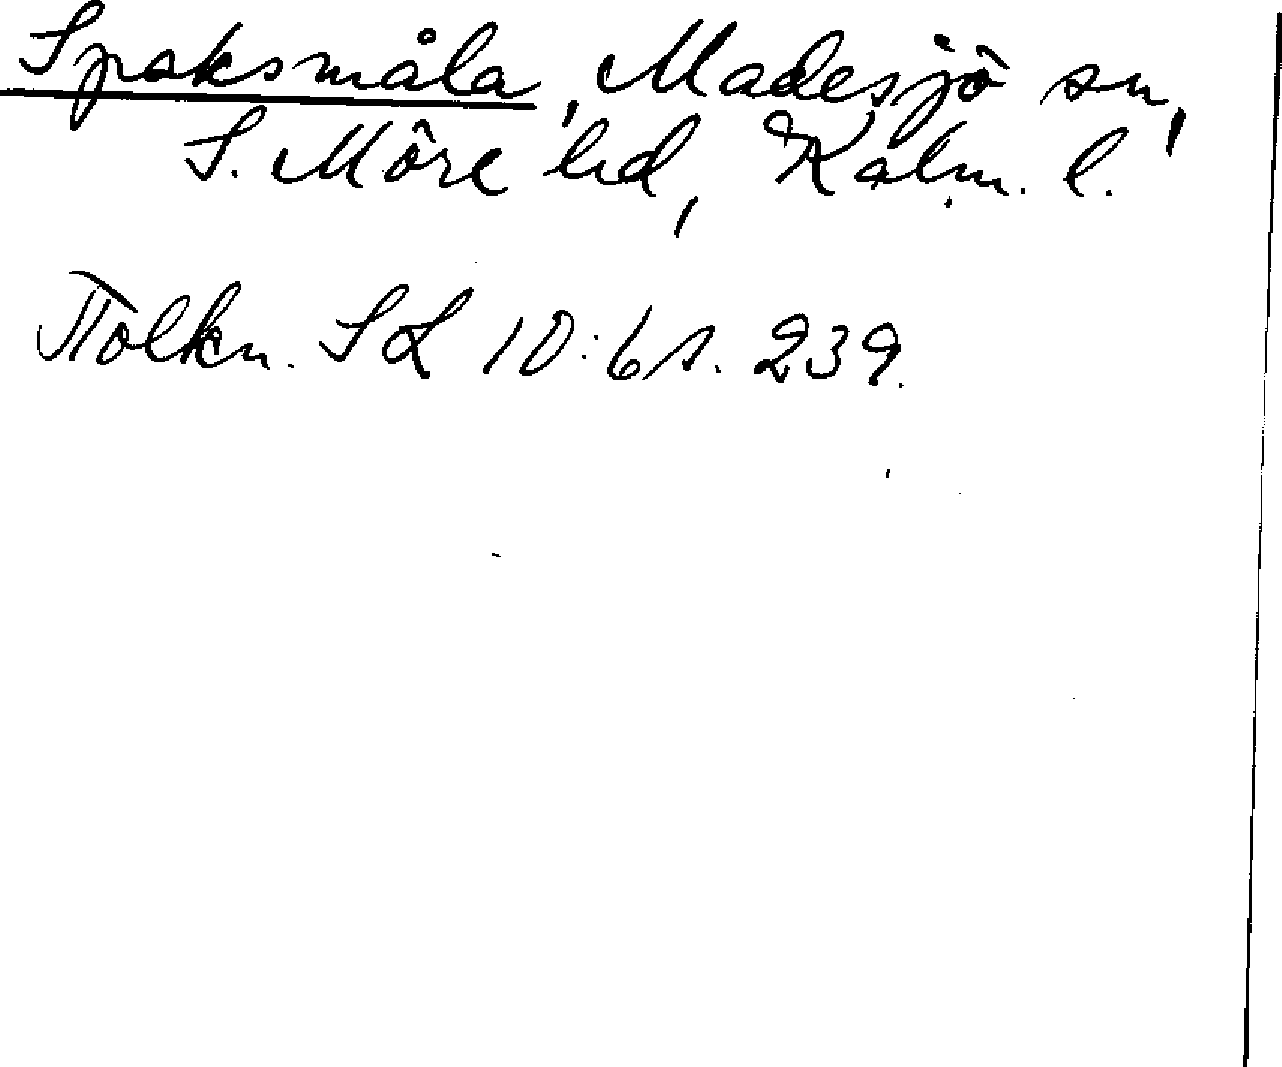 Spaksmåla, Madesjö sn,
S. Möre hd, Kalm. l.
Tolkn. SL 10:6 s. 239.